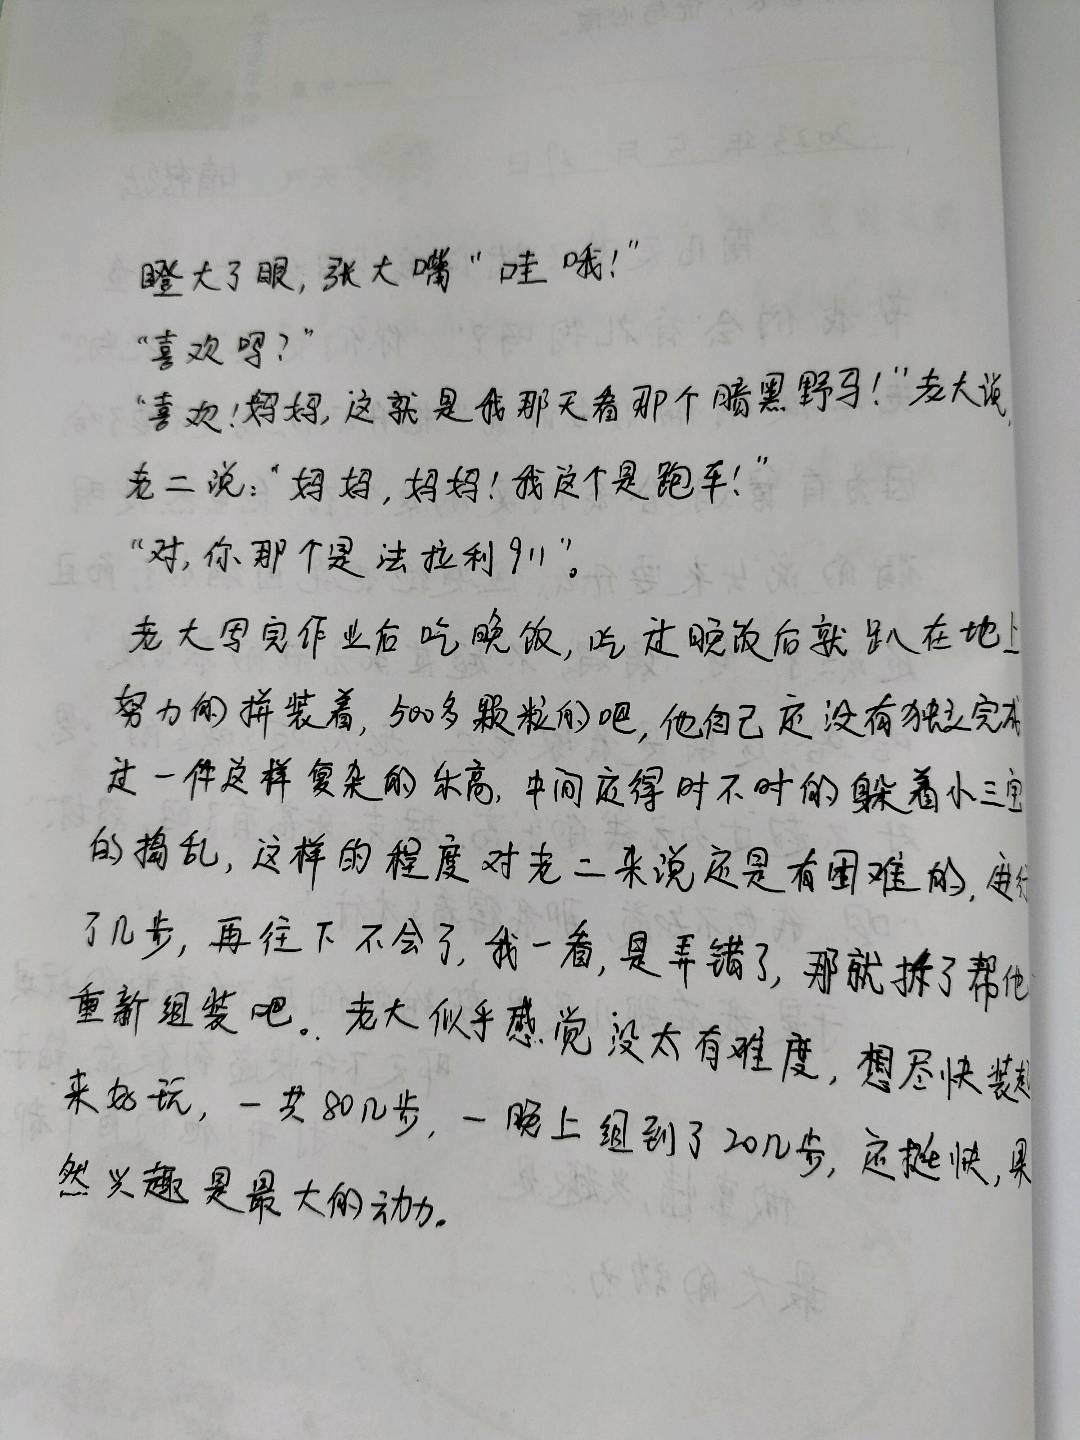 瞪大了眼,张大嘴"哇哦!"
"喜欢吗?"
"喜欢!妈妈,这就是我那天看那个暗黑野马!"老大说,
老二说:"妈妈,妈妈!我这个是跑车!"
"对,你那个是法拉利911"。
老大写完作业后吃晚饭,吃过晚饭后就趴在地上
努力的拼装着,500多颗粒的吧,他自己还没有独立完成
过一件这样复杂的乐高,中间还得时不时的躲着小三宝
的捣乱,这样的程度对老二来说还是有困难的,
了几步,再往下不会了,我一看,是弄错了,那就拆了帮他
重新组装吧。老大似乎感觉没太有难度,想尽快装起
来好玩,一共80几步,一晚上组到了20几步,还挺快,果
然兴趣是最大的动力。